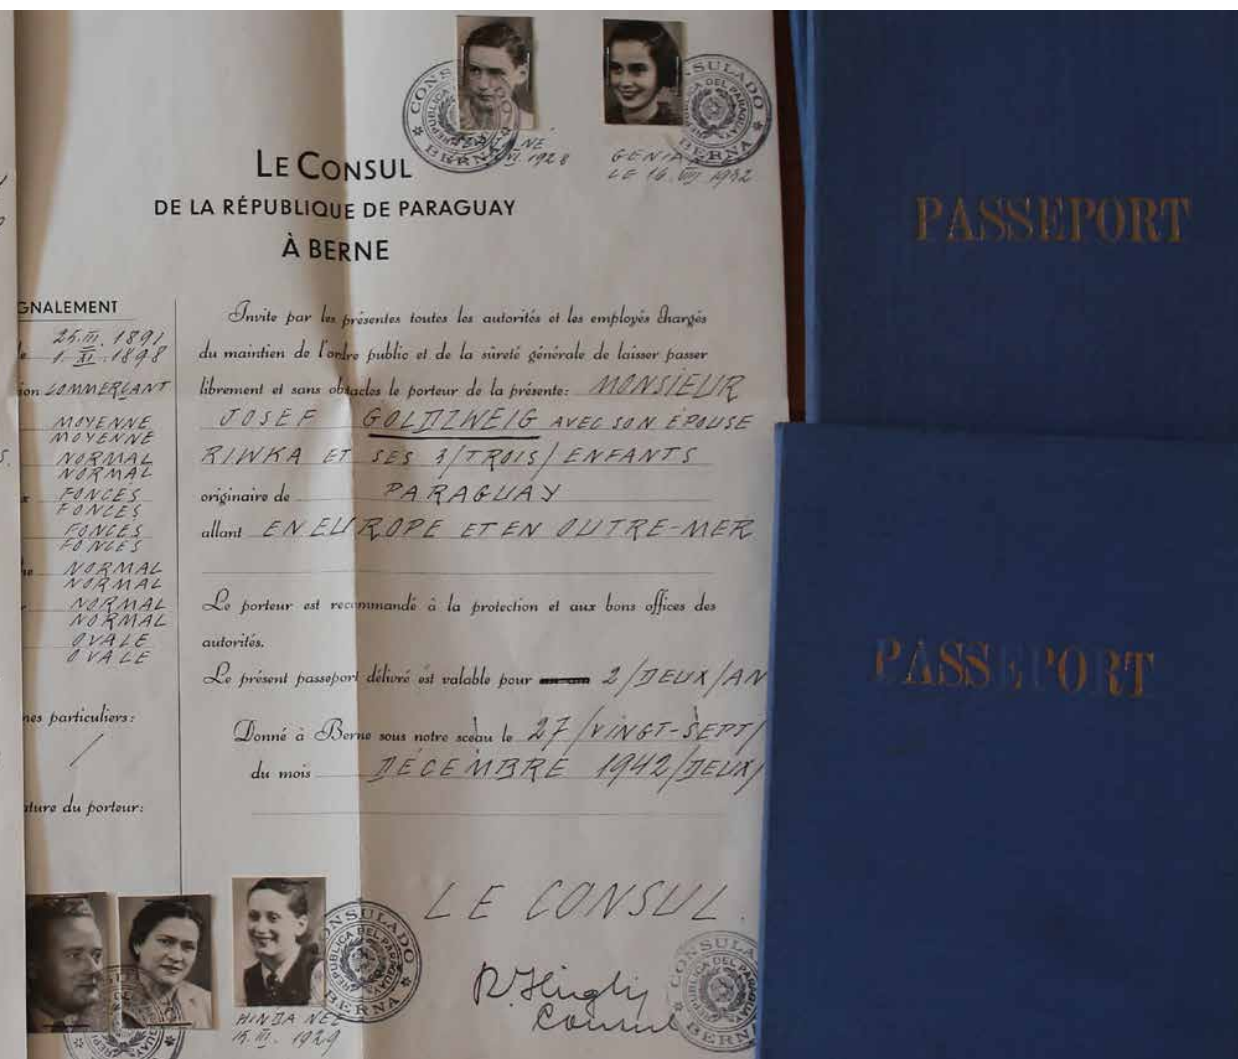 NÉ
VI. 1928
GENIA
LE 16. VIII 1942
LE CONSUL
DE LA RÉPUBLIQUE DE PARAGUAY
À BERNE
GNALEMENT
25. III. 1891
1. XI. 1898
ion COMMERÇANT
MOYENNE
MOYENNE
NORMAL
NORMAL
FONCÉS
FONCÉS
FONCÉS
FONCÉS
NORMAL
NORMAL
NORMAL
NORMAL
OVALE
OVALE
nes particuliers:
/
ature du porteur:
Invite par les présentes toutes les autorités et les employés chargés
du maintien de l'ordre public et de la sûreté générale de laisser passer
librement et sans obstacles le porteur de la présente: MONSIEUR
JOSEF GOLDZWEIG AVEC SON ÉPOUSE
RIWKA ET SES 3/TROIS/ENFANTS
originaire de PARAGUAY
allant EN EUROPE ET EN OUTRE-MER
Le porteur est recommandé à la protection et aux bons offices des
autorités.
Le présent passeport délivré est valable pour 2/DEUX/AN
Donné à Berne sous notre sceau le 27/VINGT-SEPT/
du mois DÉCEMBRE 1942/DEUX/
LE CONSUL.
R. Hügli
Consul
HINDA NÉE
15. III. 1929
CONSULADO
REPUBLICA DEL PARAGUAY
BERNA
CONSULADO
REPUBLICA DEL PARAGUAY
BERNA
PASSEPORT
PASSEPORT